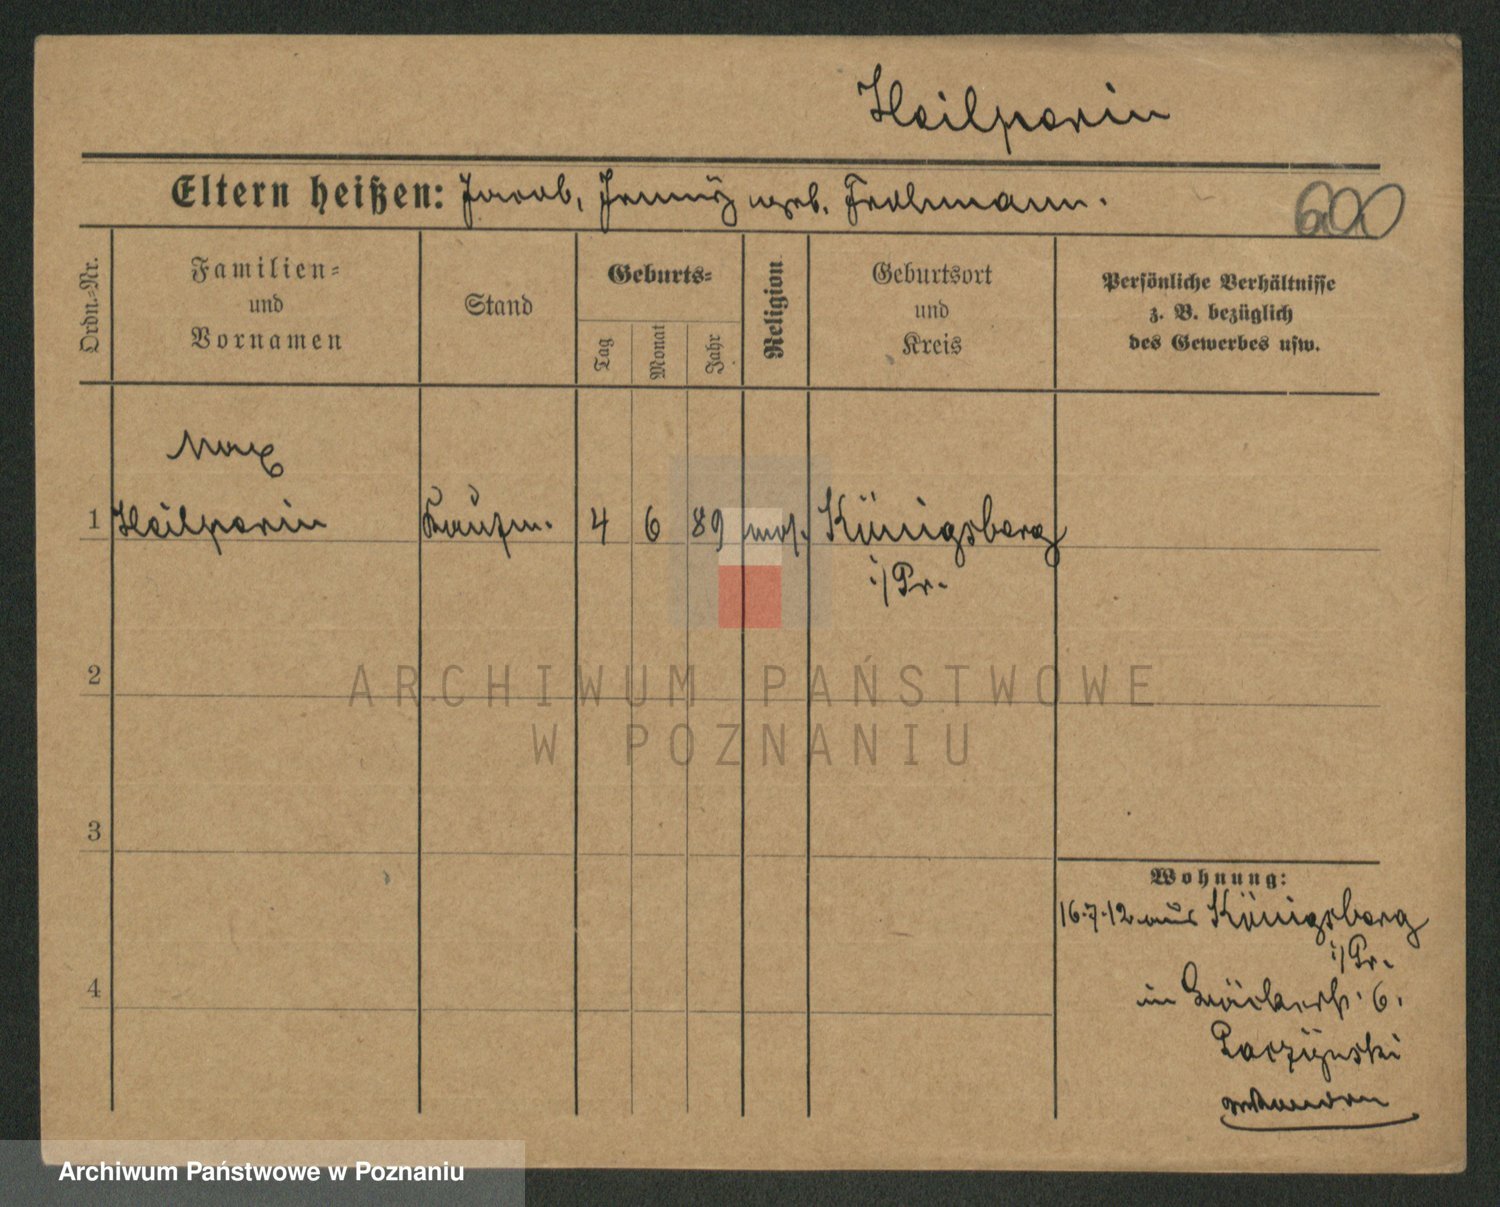 Heilperin
Eltern heißen: Jacob, Jenny geb. Frohmann.
600
Ordn.=Nr.
Familien=
und
Vornamen
Stand
Geburts=
Tag
Monat
Jahr
Religion
Geburtsort
und
Kreis
Persönliche Verhältnisse
z. B. bezüglich
des Gewerbes usw.
Max
1 Heilperin Kaufm. 4 6 89 mos. Königsberg
i/Pr.
2
3
4
Wohnung:
16.7.12 aus Königsberg
i/Pr.
in Bäckerstr. 6.
ARCHIWUM PAŃSTWOWE
W POZNANIU
Archiwum Państwowe w Poznaniu